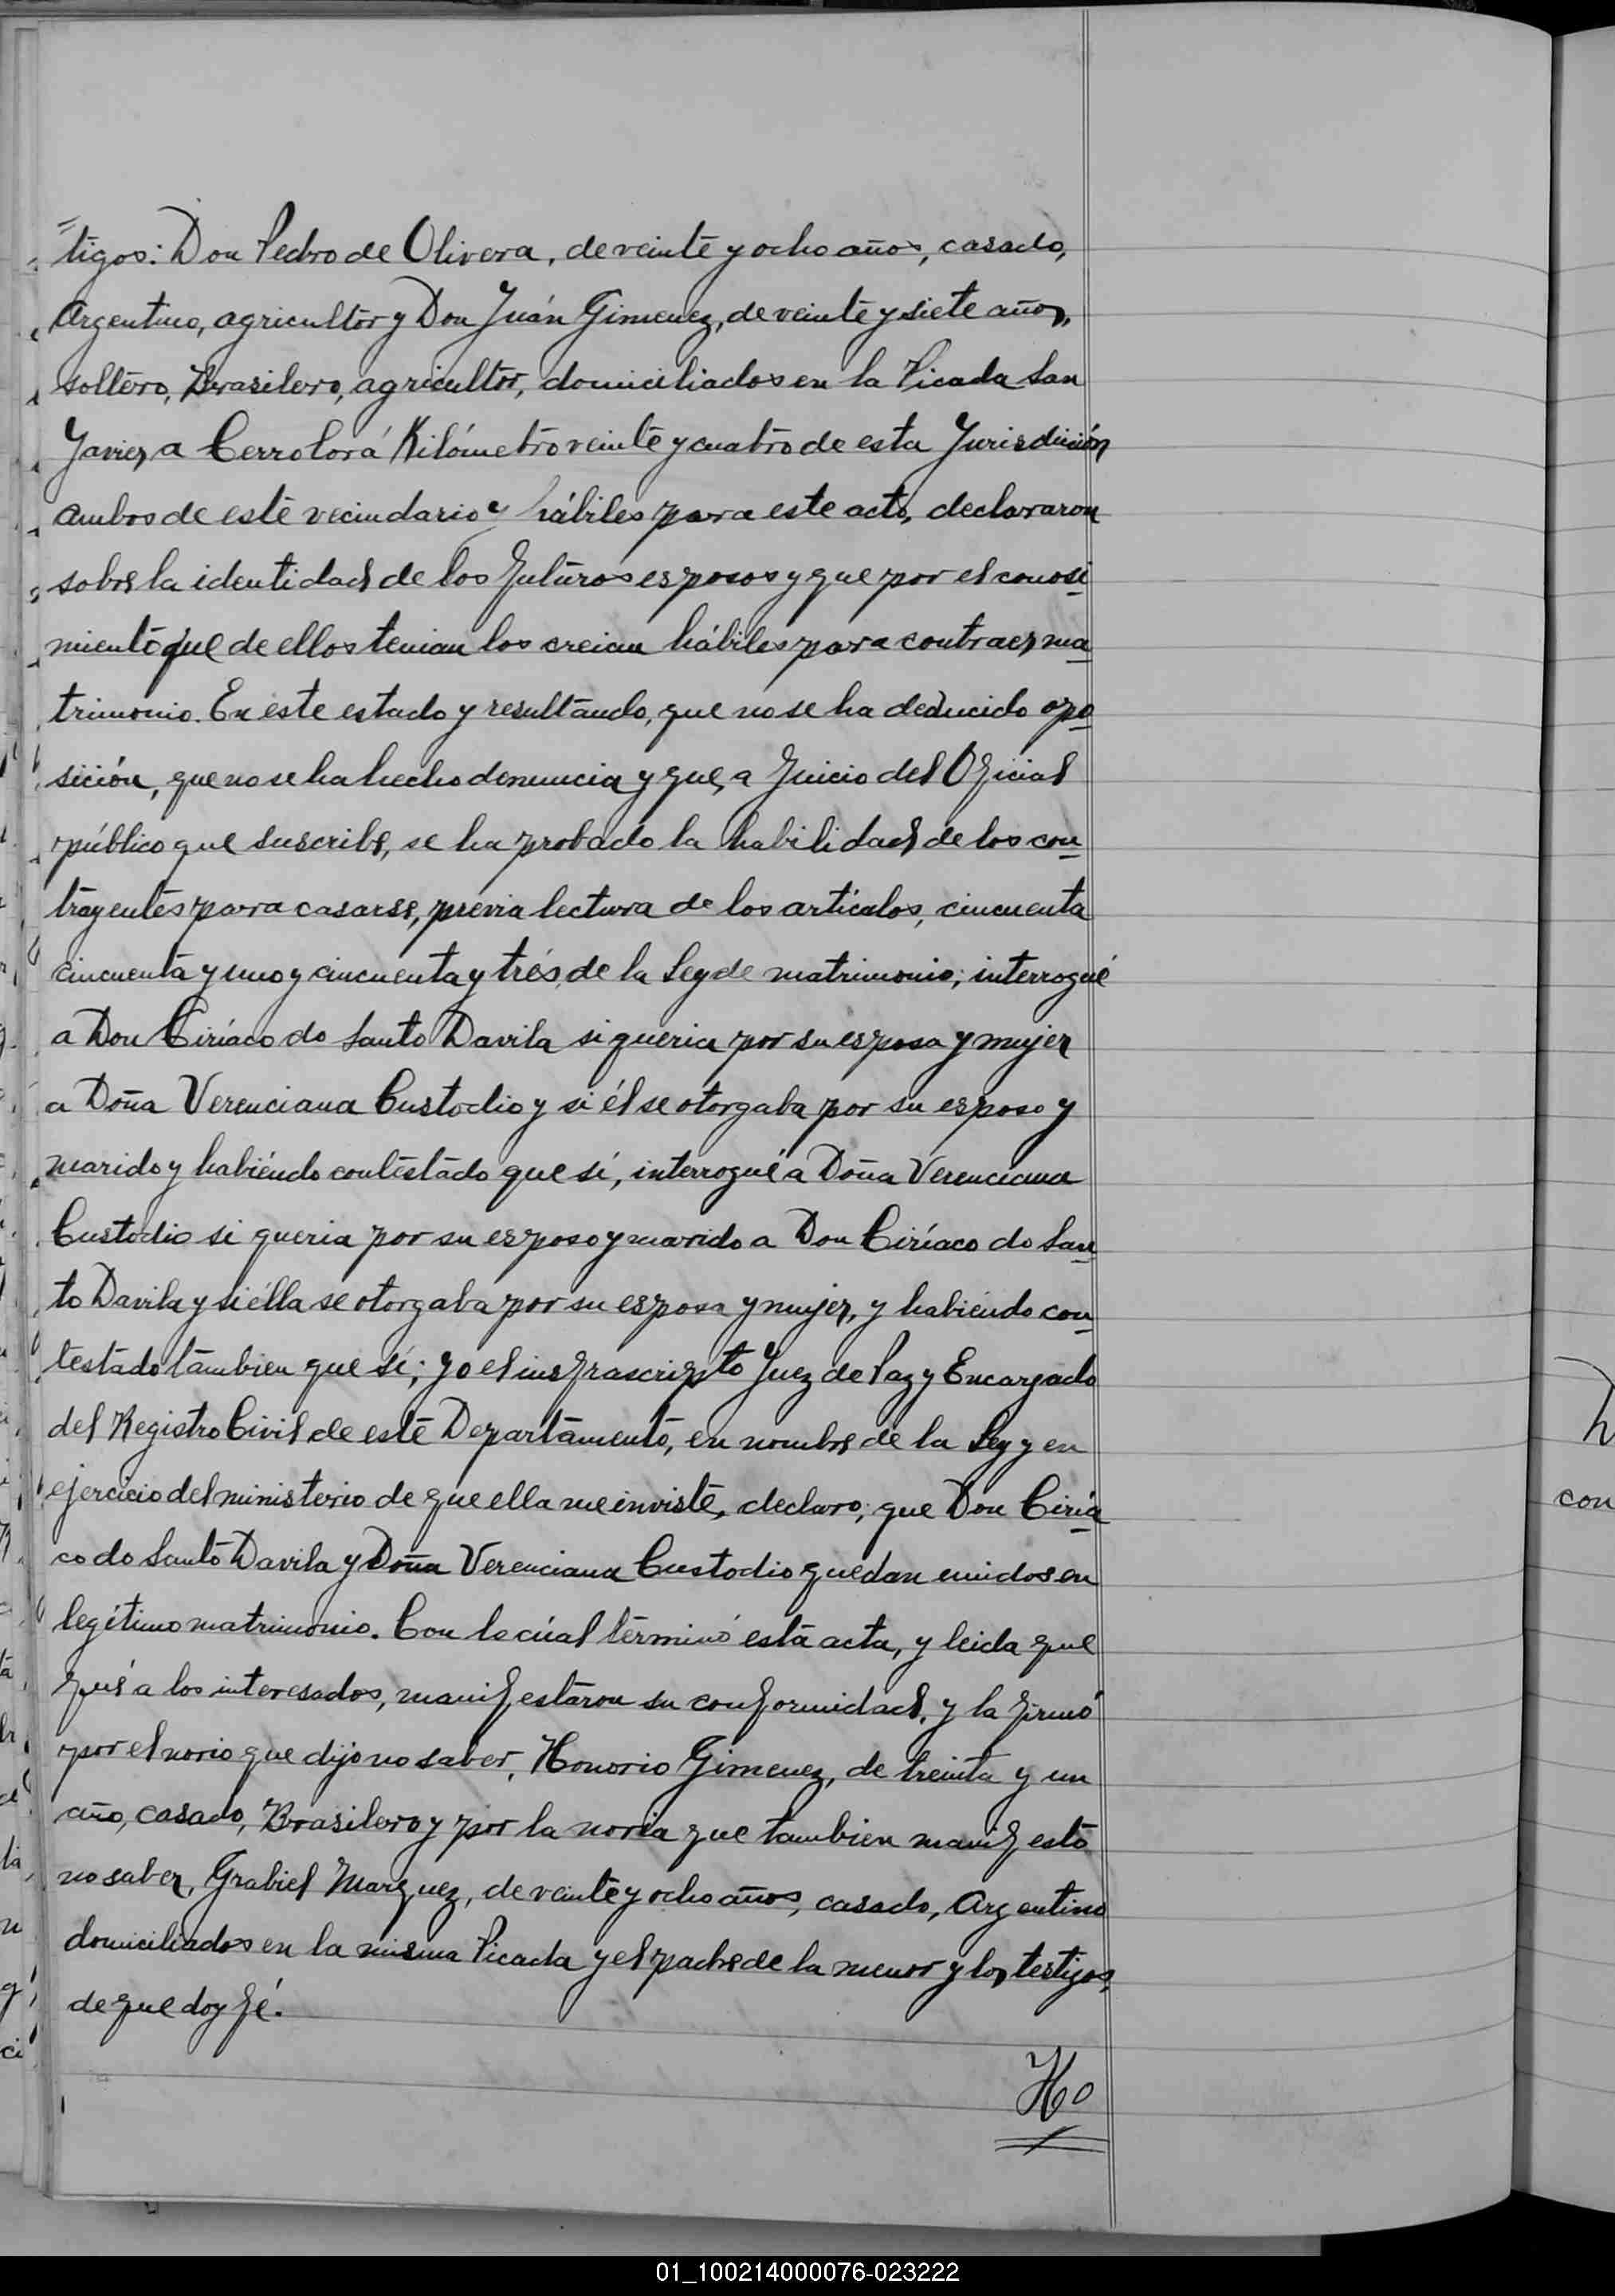 =tigos: Don Pedro de Olivera, de veinte y ocho años, casado,
Argentino, agricultor y Don Juán Gimenez, de veinte y siete años,
soltero, Brasilero, agricultor, domiciliados en la Picada San
Javier, a Cerro Corá Kilómetro veinte y cuatro de esta Jurisdición
ambos de este vecindario y hábiles para este acto, declararon
sobre la identidad de los futuros esposos y que por el conosi
miento que de ellos tenian los creian hábiles para contraer ma
trimonio. En este estado y resultando, que no se ha deducido opo
sición, que no se ha hecho denuncia y que, a Juicio del Oficial
público que suscribe, se ha probado la habilidad de los con
trayentes para casarse, previa lectura de los artículos, cincuenta
cincuenta y uno y cincuenta y trés, de la Ley de matrimonio; interrogué
a Don Ciríaco do Santo Davila si queria por su esposa y mujer
a Doña Verenciana Custodio y si él se otorgaba por su esposo y
marido y habiéndo contestado que sí, interrogué a Doña Verenciana
Custodio si queria por su esposo y marido a Don Ciríaco do San
to Davila y si élla se otorgaba por su esposa y mujer, y habiéndo con
testado tambien que sí; yo el infrascripto Juez de Paz y Encargado
del Registro Civil de este Departamento, en nombre de la Ley y en
ejercicio del ministerio de que ella me inviste, declaro; que Don Ciría
co do Santo Davila y Doña Verenciana Custodio quedan unidos en
legítimo matrimonio. Con lo cúal terminó esta acta, y leida que
fué a los interesados, manifestaron su conformidad, y la firmó
por el novio que dijo no saber, Honorio Gimenez, de treinta y un
año, casado, Brasilero y por la novia que tambien manifestó
no saber, Grabiel Marquez, de veinte y ocho años, casado, Argentino
domiciliados en la misma Picada y el padre de la menor y los testigos,
de que doy fé.
Ho
con
01_100214000076-023222